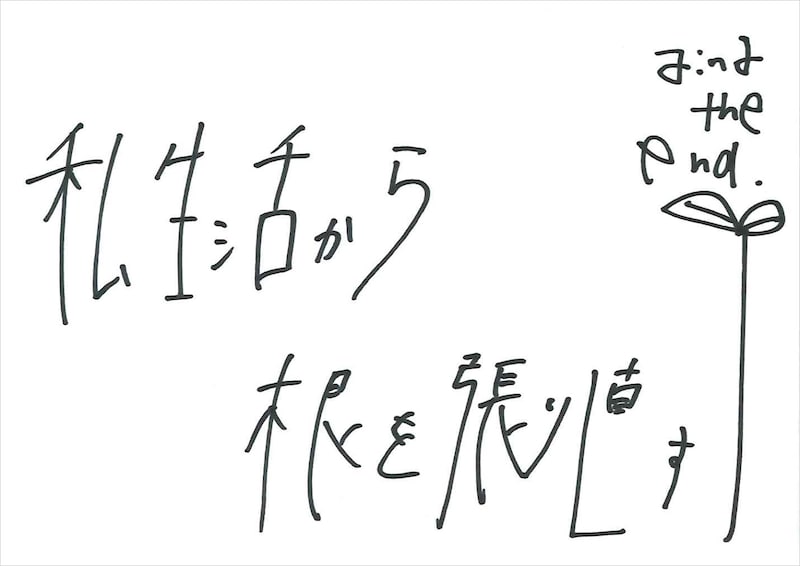 私生活から
根を張り直す
aind
the
end.